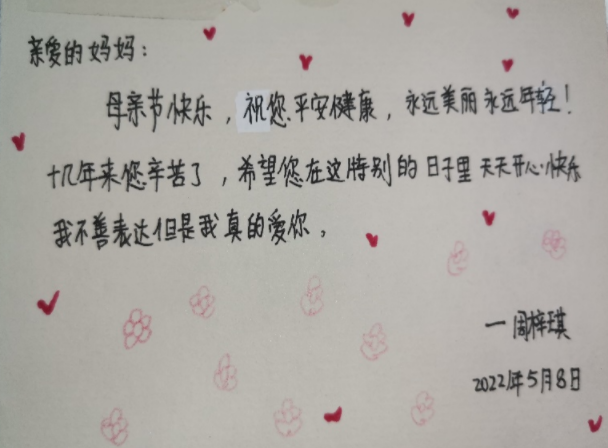 亲爱的妈妈：
母亲节快乐，祝您平安健康，永远美丽永远年轻！
十几年来您辛苦了，希望您在这特别的日子里天天开心快乐
我不善表达但是我真的爱你，
一周梓琪
2022年5月8日